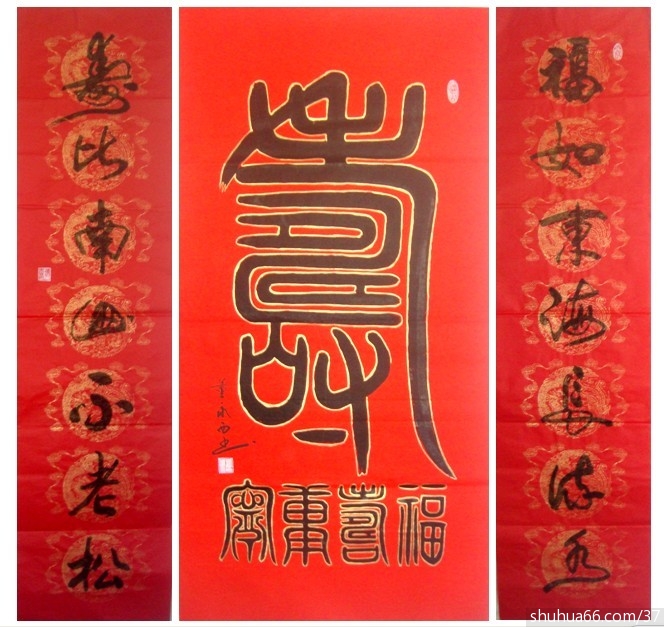 福如東海長流水
壽
福壽康寧
壽比南山不老松
shuhua66.com/37